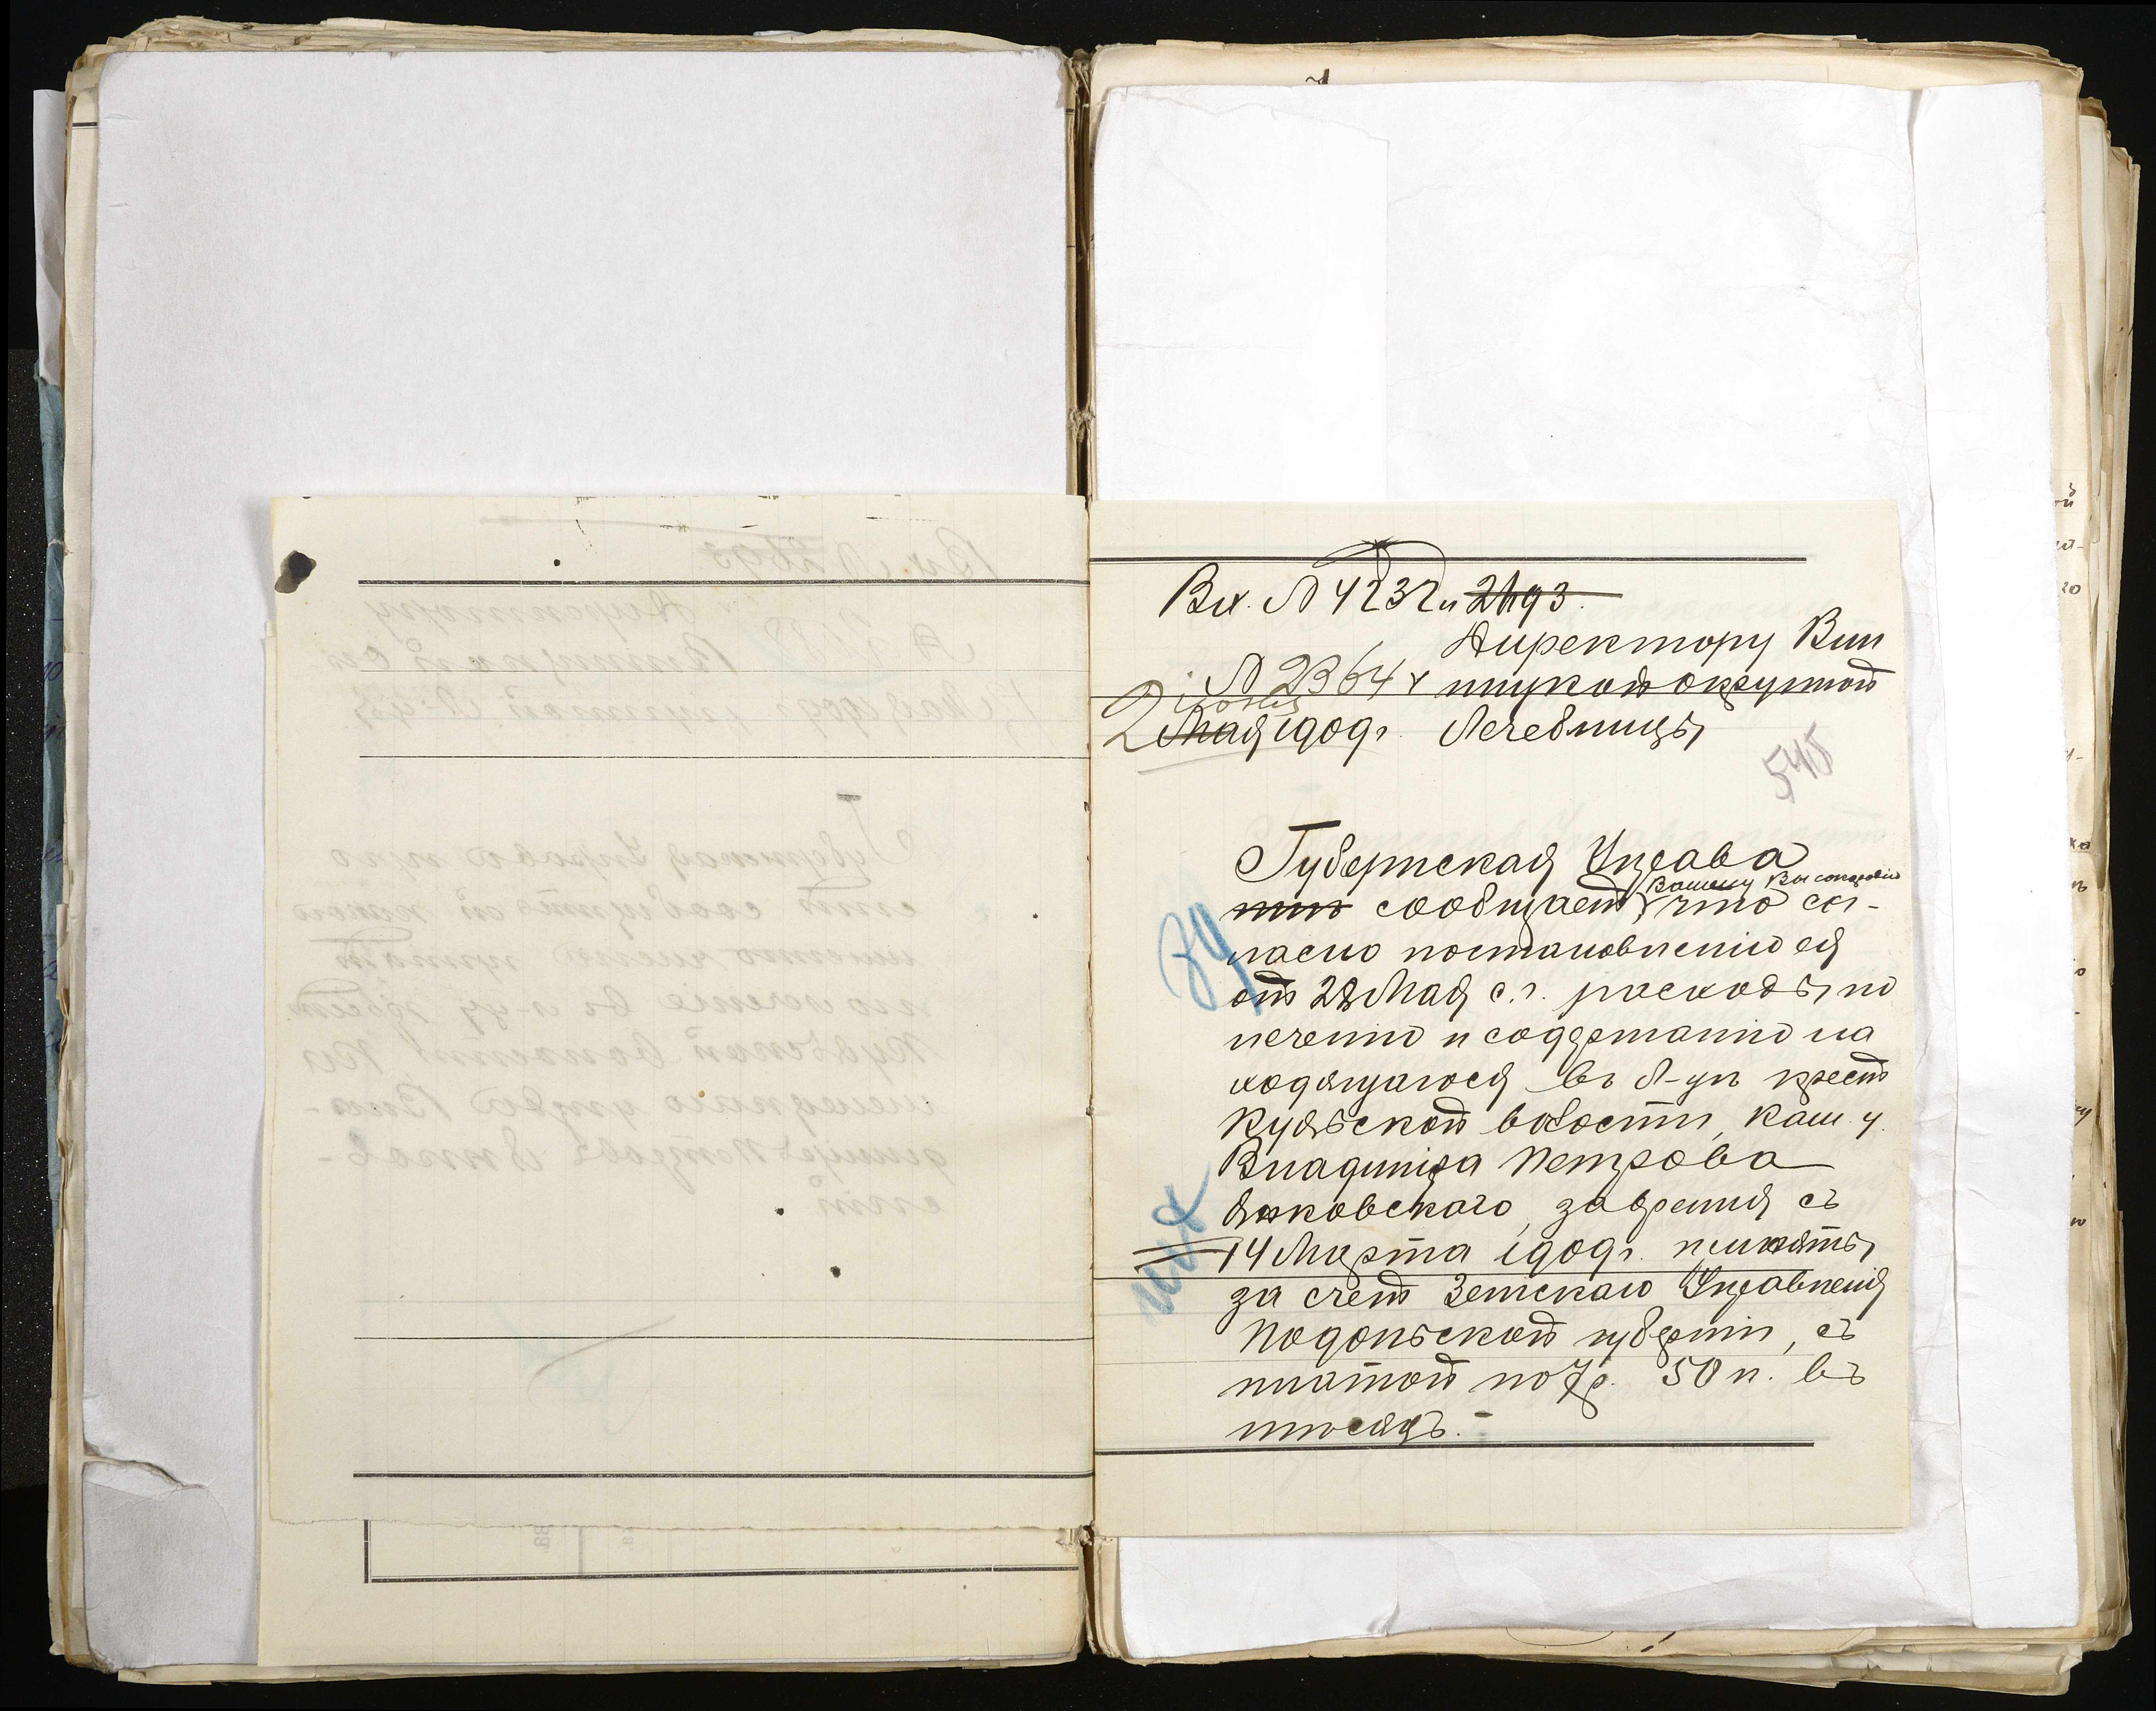 Вх. № 4232 и 2493.
Директору Вин
№ 2364 ницкой окружной
2 Июня
Мая 1909 г. Лечебницы
545
Губернская Управа
Вашему Высокородію
сообщаетъ, что со-
гласно постановленію ея
отъ 28 Мая с.г. расходы по
леченію и содержанію на
ходящагося въ л-цѣ крест
Кудьской волости, Каш. у.
Владиміра Петрова
Янковскаго, за время съ
14 Марта 1909 г. принять
за счетъ Земскаго Управленія
Подольской губерніи, съ
платой по 7 р. 50 к. въ
мѣсяцъ.